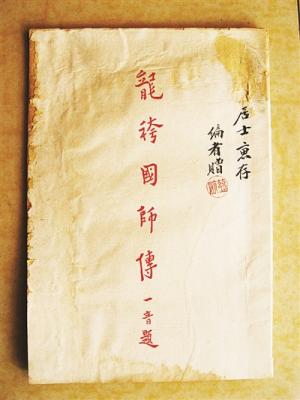 居士惠存
编者赠
龍袴國師傳 一音題